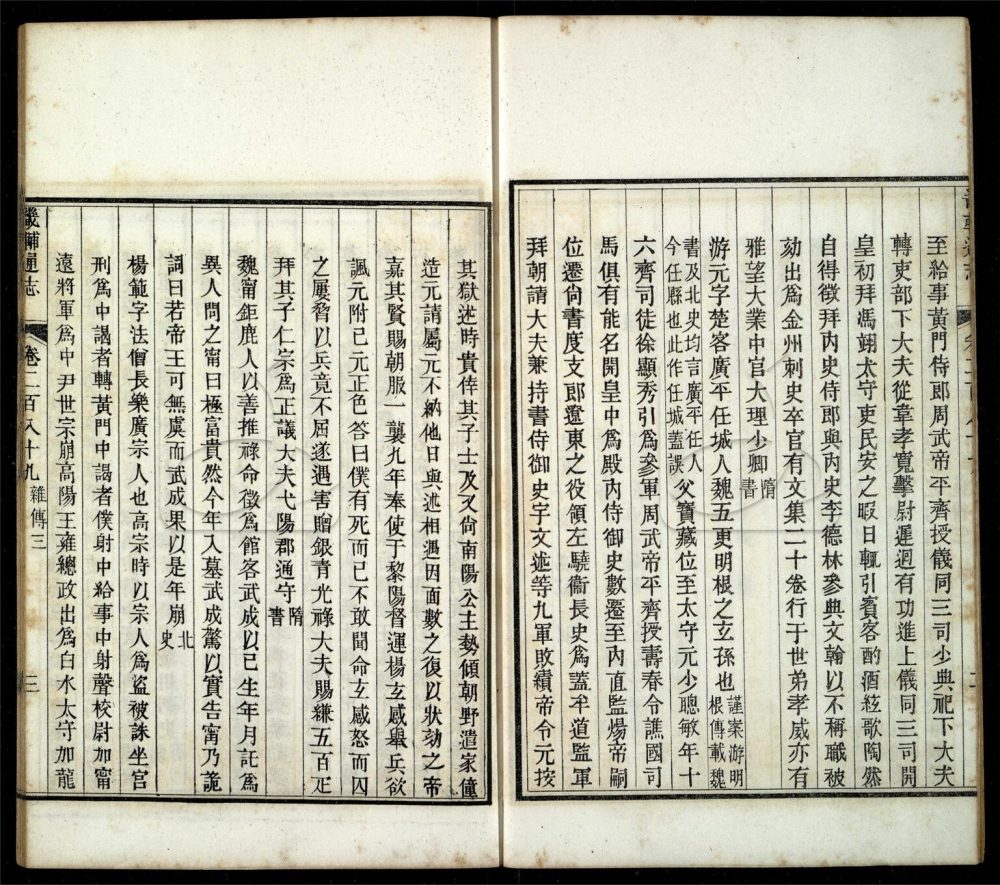 至給事黃門侍郎周武帝平齊授儀同三司少典祀下大夫
轉吏部下大夫從韋孝寬擊尉遲迥有功進上儀同三司開
皇初拜馮翊太守吏民安之暇日輒引賓客酌酒絃歌陶然
自得徵拜內史侍郎與內史李德林參典文翰以不稱職被
劾出爲金州刺史卒官有文集二十卷行于世弟孝威亦有
雅望大業中官大理少卿隋書
游元字楚客廣平任城人魏五更明根之玄孫也謹案游明根傳載魏
書及北史均言廣平任人今任縣也此作任城蓋誤父寶藏位至太守元少聰敏年十
六齊司徒徐顯秀引爲參軍周武帝平齊授壽春令譙國司
馬俱有能名開皇中爲殿內侍御史數遷至內直監煬帝嗣
位遷尙書度支郎遼東之役領左驍衞長史爲蓋牟道監軍
拜朝請大夫兼持書侍御史宇文述等九軍敗績帝令元按
其獄述時貴倖其子士及又尙南陽公主勢傾朝野遣家僮
造元請屬元不納他日與述相遇因面數之復以狀劾之帝
嘉其賢賜朝服一襲九年奉使于黎陽督運楊玄感舉兵欲
諷元附已元正色答曰僕有死而已不敢聞命玄感怒而囚
之屢脅以兵竟不屈遂遇害贈銀青光祿大夫賜縑五百疋
拜其子仁宗爲正議大夫弋陽郡通守隋書
魏甯鉅鹿人以善推祿命徵爲館客武成以已生年月託爲
異人問之甯曰極富貴然今年入墓武成驚以實告甯乃詭
詞曰若帝王可無虞而武成果以是年崩北史
楊範字法僧長樂廣宗人也高宗時以宗人爲盜被誅坐宮
刑爲中謁者轉黃門中謁者僕射中給事中射聲校尉加甯
遠將軍爲中尹世宗崩高陽王雍總政出爲白水太守加龍
畿輔通志
卷二百八十九
雜傳三
三